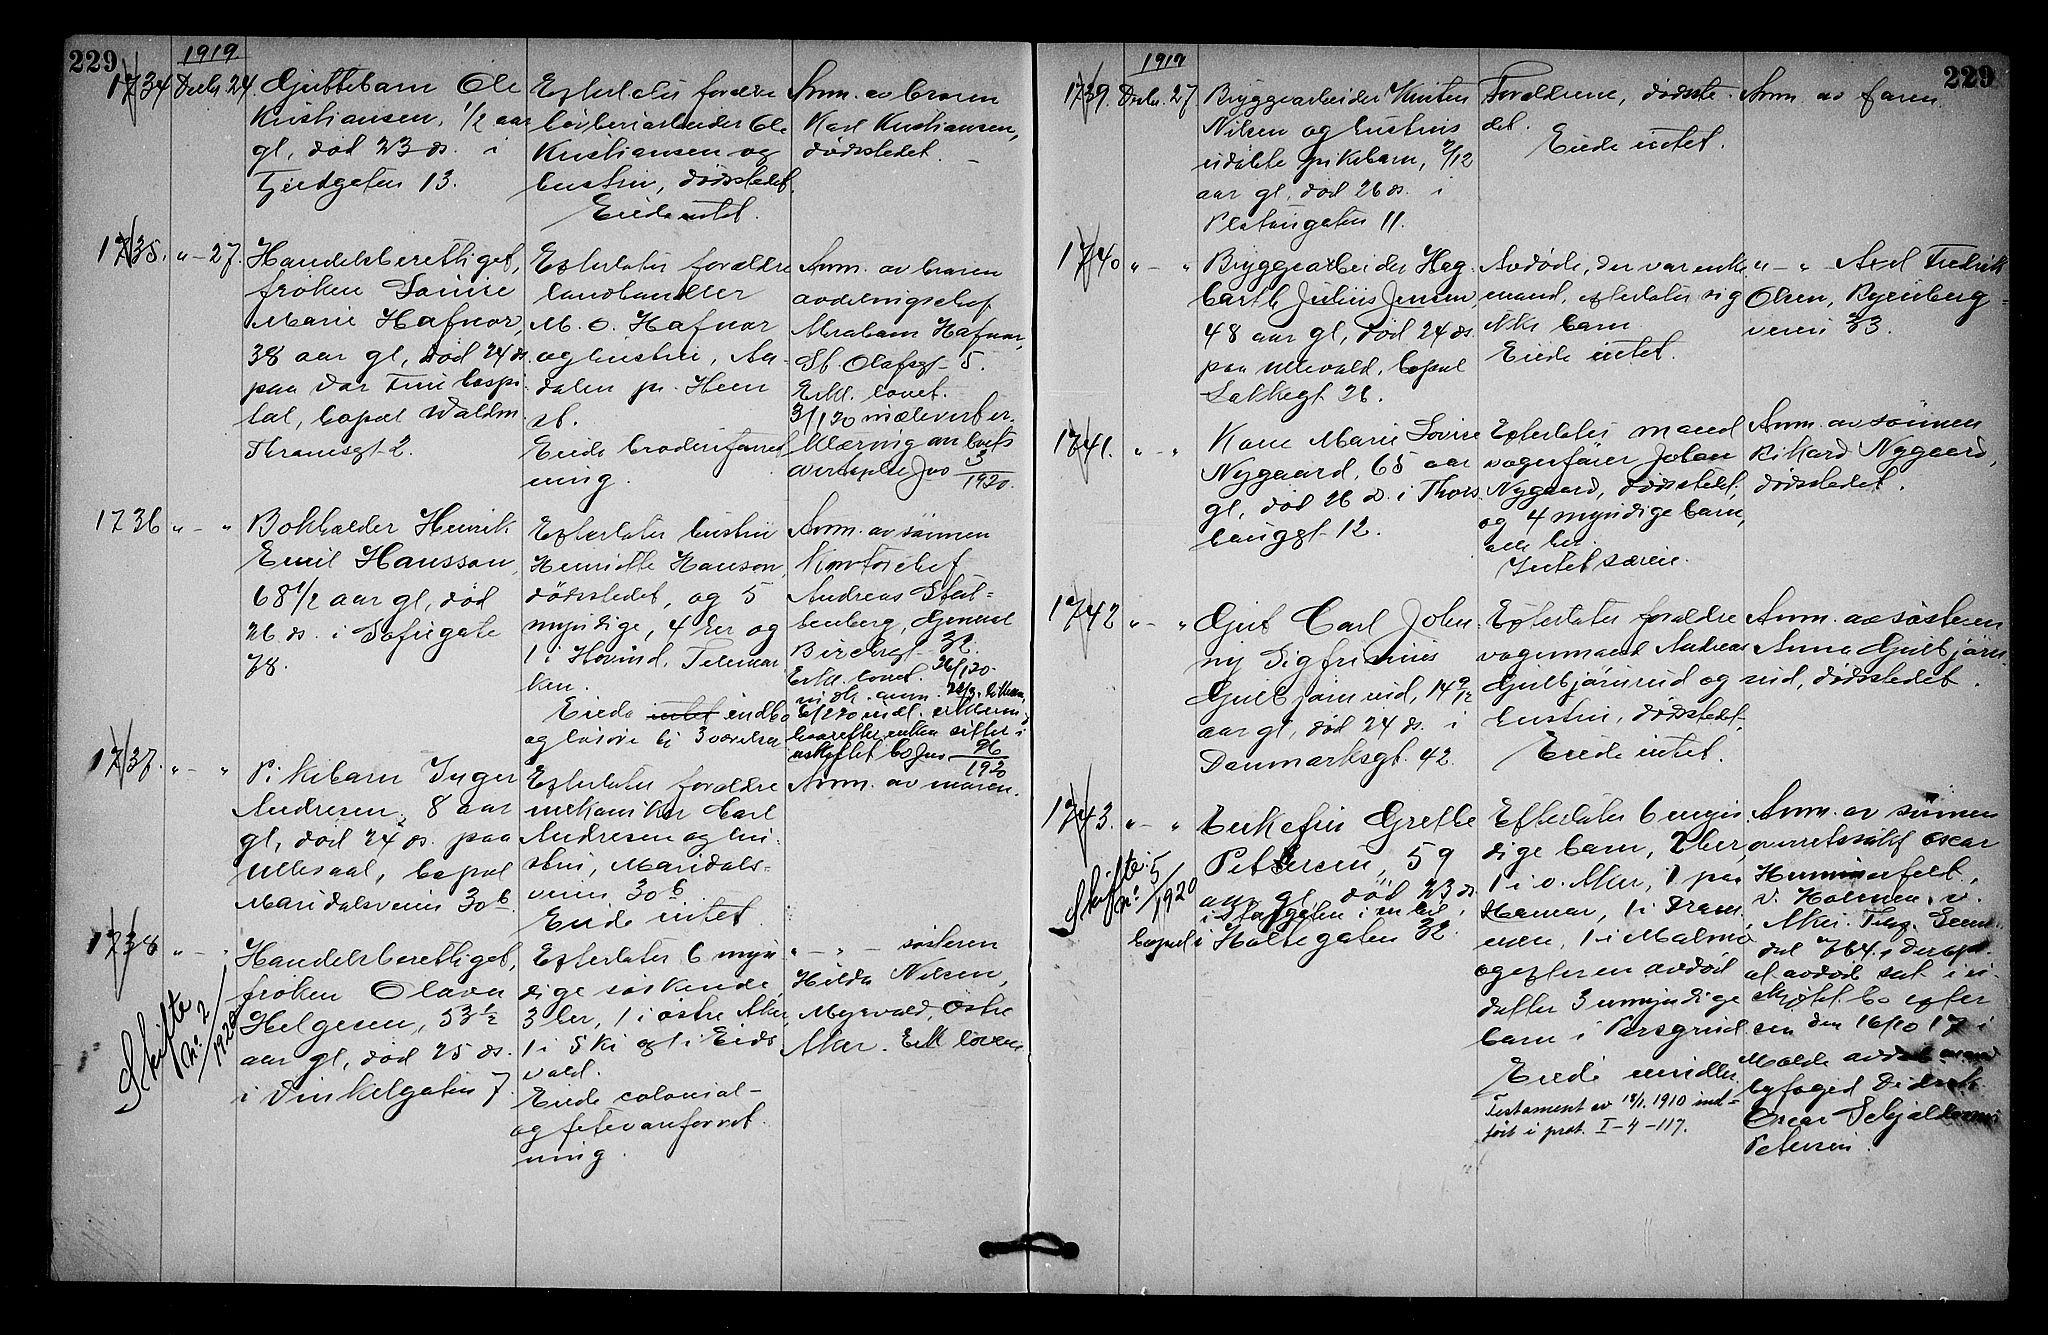 229
1919
1734 Decbr. 24.
Gjuttebarn Ole
Kristiansen, 1/2 aar
gl, död 23 ds. i
13.
Efterlater forældre
Ole
Kristiansen og
hustru, dödsstedet.
Eiede intet.
Anm. av broren
Karl Kristiansen,
dödsstedet.
1735. " - 27.
Handelsberettiget,
fröken Louise
Marie Hafnor,
38 aar gl, död 24 ds.
paa Vor Frue hospi
tal, bopæl Waldm.
Thranesgt. 2.
Efterlater forældre
landhandler
M. O. Hafnor
og hustru, Aa-
dalen pr. Heen
st.
Eiede broderiforret
ning.
Anm. av broren
avdelingschef
Abraham Hafnor,
St. Olafsgt. 5.
Erkl. lovet.
3/1 20
Jno 3
1920.
1736 " - "
Bokholder Henrik
Emil Hansson,
68 1/2 aar gl, död
26 ds. i Sofiegate
78.
Efterlater hustru
Henriette Hanson,
dödsstedet, og 5
myndige, 4 her og
1 i Hovind, Telemar
ken.
Eiede intet indbo
og lösöre til 3 værelser
Anm. av sönnen
Kontorchef
Andreas
General
Birchsgt. 32.
Erkl. lovet. 26/1 20
enken sitter i
uskiftet bo Jno 96
1920
1737. " - "
Pikebarn Inger
Andresen, 8 aar
gl, död 24 ds. paa
Ullevaal, bopæl
Maridalsveien 30 b.
Efterlater forældre
mekaniker Carl
Andresen og hu-
stru, Maridals-
veien 30 b
Eiede intet.
Anm. av moren.
1738 " - "
Skifte
No. 2
1920
Handelsberettiget,
fröken Olava
Helgesen, 53 1/2
aar gl, död 25 ds.
i Vinkelgaten 7.
Efterlater 6 myn
dige söskende,
3 her, 1 i östre Aker,
1 i Ski og 1 i Eids
vold.
Eiede colonial-
og fetevareforret
ning.
" - " - sösteren
Hilda Nilsen,
Myrvold, Östre
Aker. Erkl. lovet.
229
1919
1739. Decbr. 27
Bryggearbeider Kristen
Nilsen og hustrus
udöbte pikebarn, 2/12
aar gl, död 26 ds. i
Platougaten 11.
Forældrene, dödsste-
det.
Eiede intet.
Anm. av faren.
1740 " - "
Bryggearbeider Hag-
barth Julius Jensen,
48 aar gl, död 24 ds.
paa Ullevold, bopæl
Lakkegt. 26.
Avdöde, der var enke
mand, efterlater sig
ikke barn
Eiede intet.
" - " - Axel Fredrik
Olsen, Ryenberg-
veien 33.
1741. " - "
Kone Marie Lovise
Nygaard, 65 aar
gl, död 26 ds. i Thors
houggt. 12.
Efterlater mand
vognfører Johan
Nygaard, dödsstedet,
og 4 myndige barn,
alle her.
Intet særeie.
Anm. av sönnen
Rikard Nygaard,
dödsstedet.
1742 " - "
Gjut Carl John-
ny Sigfrinius
Gulbjörnrud, 14 9/12
aar gl, död 24 ds. i
Danmarksgt. 42.
Efterlater forældre
vognmand Andreas
Gulbjörnrud og
hustru, dödsstedet.
Eiede intet.
Anm. av sösteren
Anna Gulbjörn
rud, dödsstedet.
1743. " - "
Skifte:
No. 5
1920
Enkefru Grethe
Petersen, 59
aar gl, död 23 ds.
i Storgaten i en bil,
bopæl i Holtegaten 32.
Efterlater 6 myn
dige barn, 2 her,
1 i v. Aker, 1 paa
Hamar, 1 i Dram
men, 1 i Malmö
og efter en avdöd
datter 3 umyndige
barn i Porsgrund.
Eiede midler.
Testament av 18/1. 1910 ind-
ført i prot. I - 4 - 117.
Anm. av sönnen
overretssakf. Oscar
Hummerfelt,
v. Holmen, v.
Aker.
764.
at avdöde sat i u-
skiftet bo efter
sin den 16/10 17 i
Molde avdöde mand
byfoged Didrik
Oscar Schjelderup
Petersen.